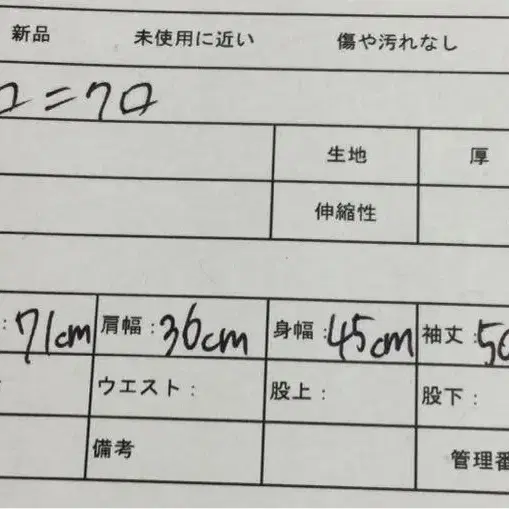 新品 未使用に近い 傷や汚れなし
ユニクロ
生地 厚
伸縮性
:71cm 肩幅:36cm 身幅:45cm 袖丈:50
ウエスト: 股上: 股下:
備考 管理番